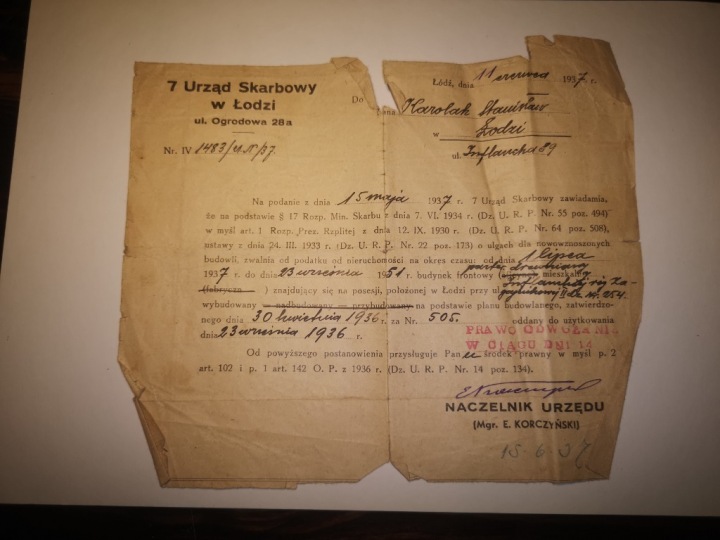 7 Urząd Skarbowy
w Łodzi
ul. Ogrodowa 28a
Nr. IV 1483/ /37.
Łódź, dnia 11 czerwca 1937 r.
Do ana Karolak Stanisław
w Łodzi
ul. Inflancka 89
Na podanie z dnia 15 maja 1937 r. 7 Urząd Skarbowy zawiadamia,
że na podstawie § 17 Rozp. Min. Skarbu z dnia 7. VI. 1934 r. (Dz. U. R. P. Nr. 55 poz. 494)
w myśl art. 1 Rozp. Prez. Rzplitej z dnia 12. IX. 1930 r. (Dz. U. R. P. Nr. 64 poz. 508),
ustawy z dnia 24. III. 1933 r. (Dz. U. R. P. Nr. 22 poz. 173) o ulgach dla nowowznoszonych
budowli, zwalnia od podatku od nieruchomości na okres czasu: od dnia 1 lipca
parter. drewniany
1937 r. do dnia 23 września 1951 r. budynek frontowy mieszkalny
(fabryczno ) znajdujący się na posesji, położonej w Łodzi przy ul. Inflanckiej róg Za-
wybudowany — nadbudowany — przybudowany na podstawie planu budowlanego, zatwierdzo- № 254.
nego dnia 30 kwietnia 1936 r. za Nr. 505. oddany do użytkowania
dnia 23 września 1936 r.
PRAWO ODWOŁANIA
W CIĄGU DNI 14
Od powyższego postanowienia przysługuje Panu środek prawny w myśl p. 2
art. 102 i p. 1 art. 142 O. P. z 1936 r. (Dz. U. R. P. Nr. 14 poz. 134).
NACZELNIK URZĘDU
(Mgr. E. KORCZYŃSKI)
15 6. 37